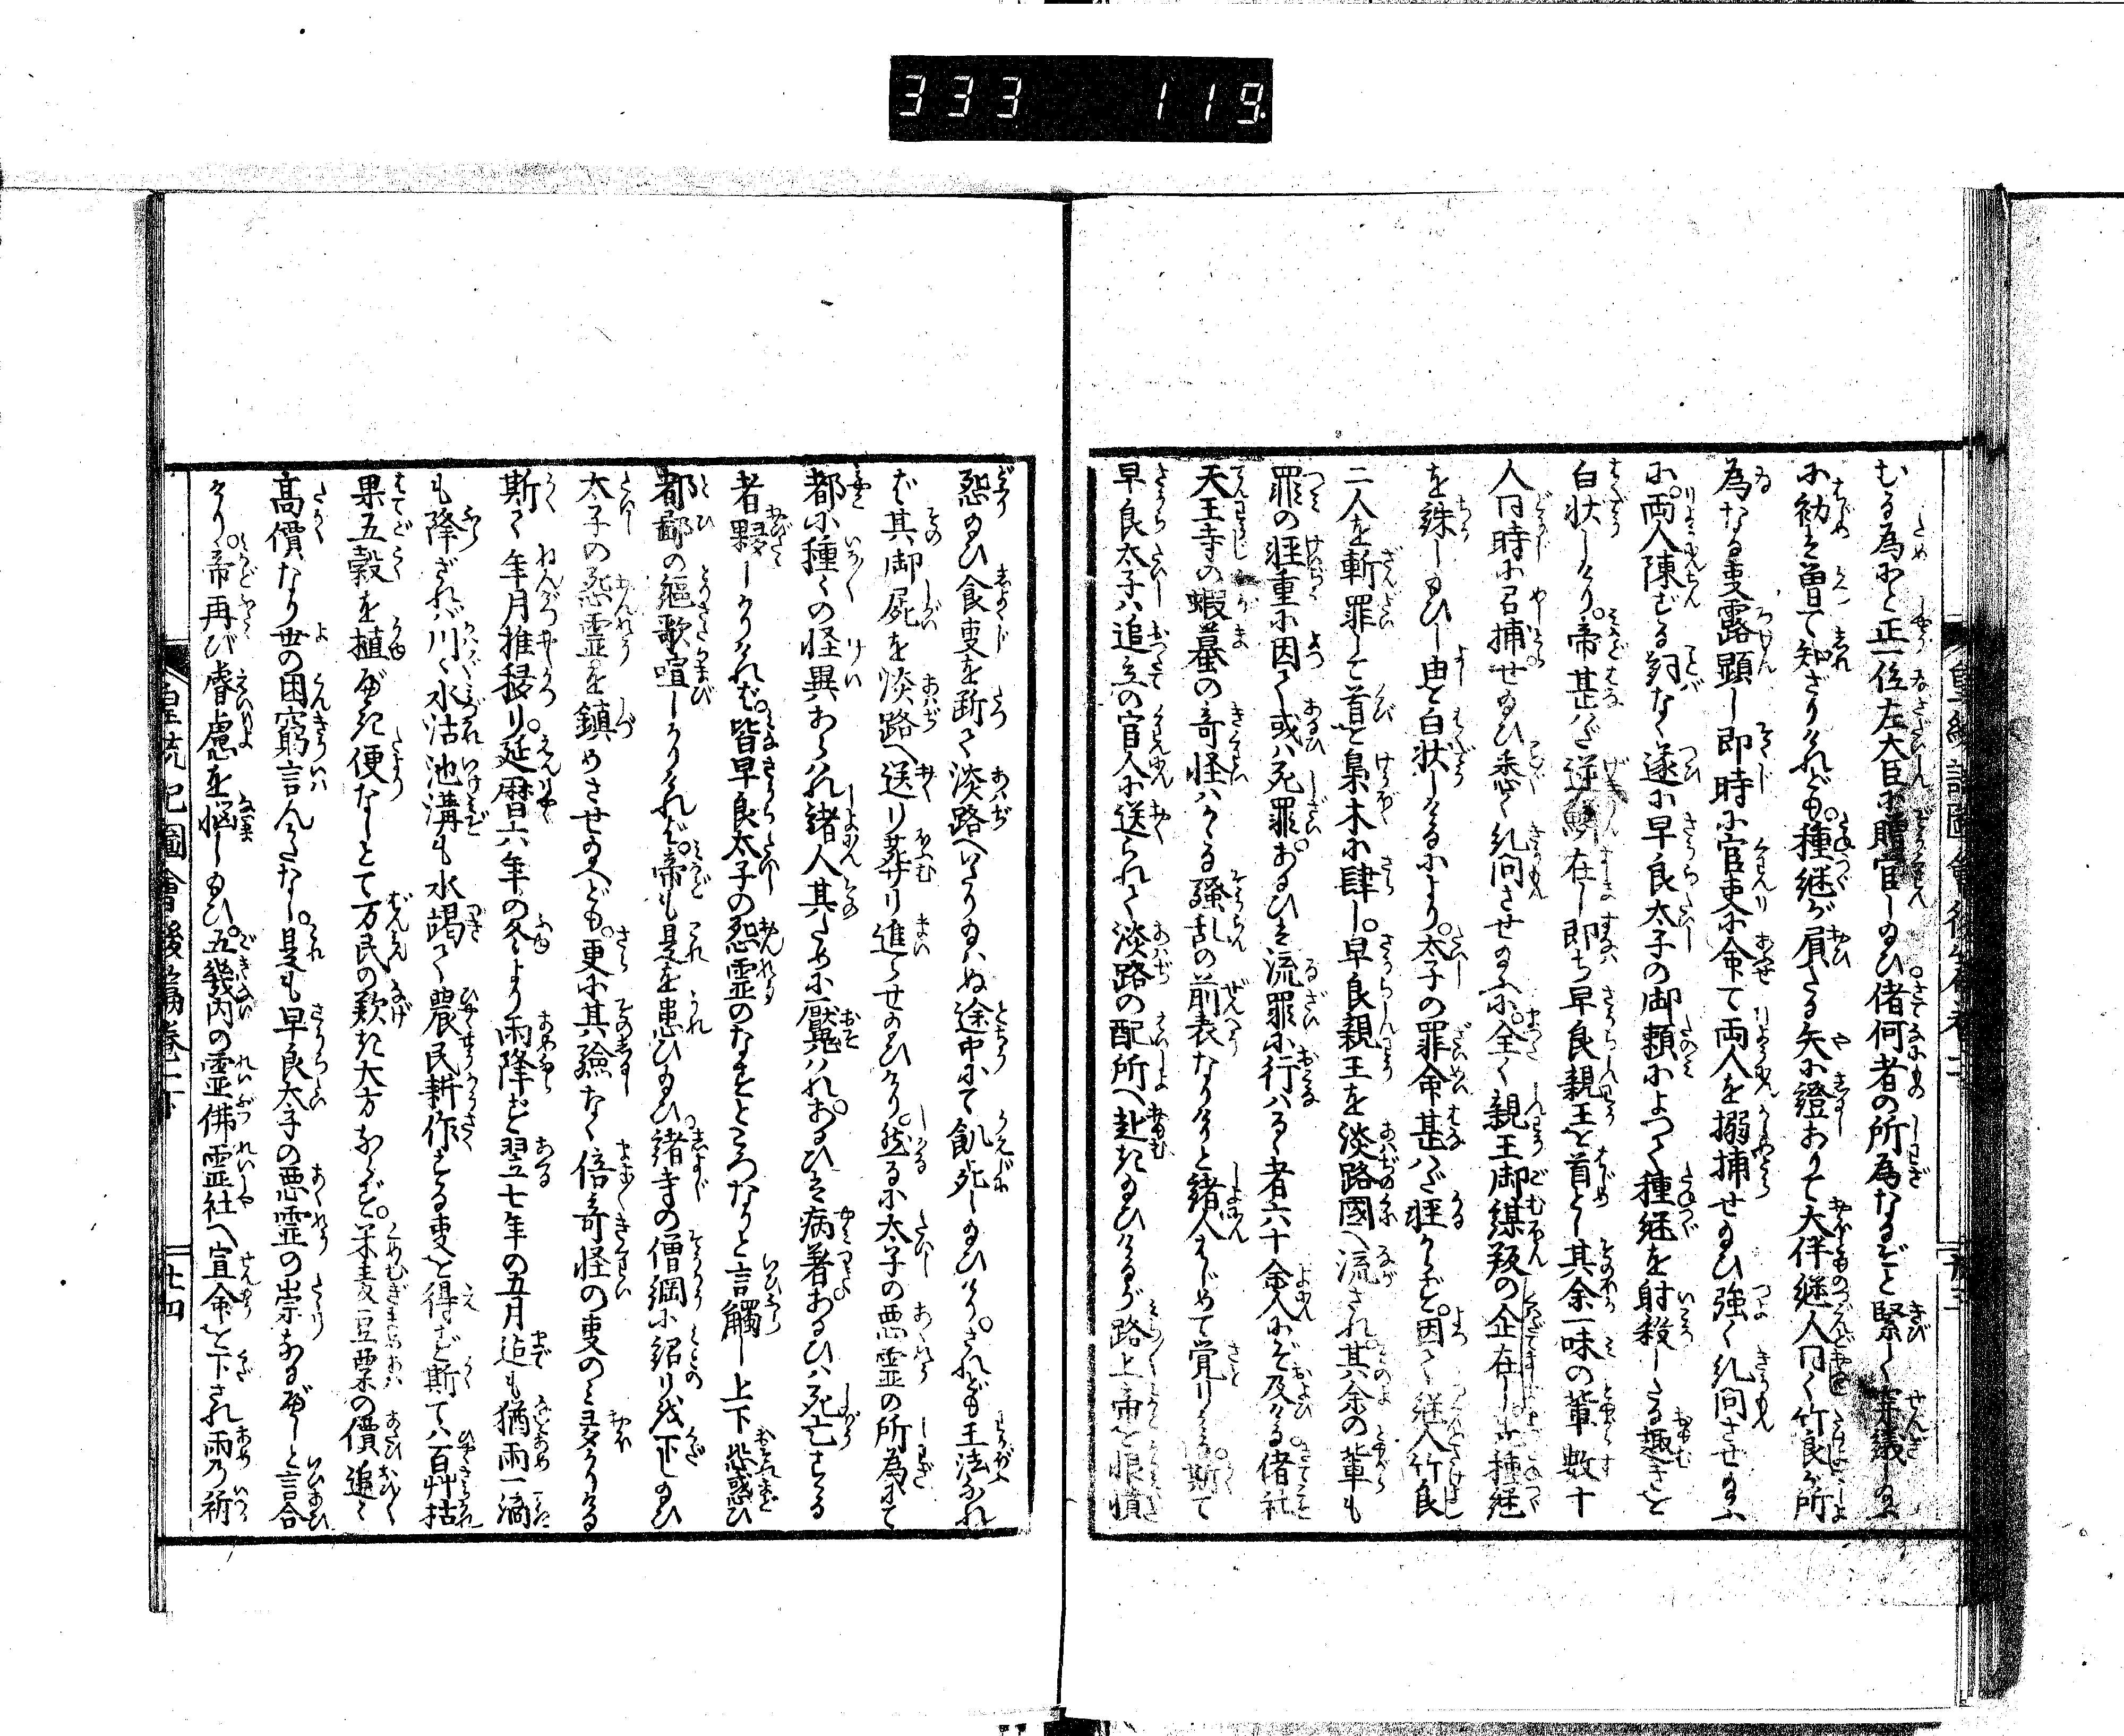 333 119
むる為にと正一位左大臣に贈官し給ひ偖何者の所為なるぞと緊しく穿議し給ふ
に初は曽て知ざりけれども種継が肩たる矢に證ありて大伴継人同く竹良が所
為なる叓露顕し即時に官吏に命て両人を搦捕せ給ひ強く糺問させ給ふ
に両人陳ずる詞なく遂に早良太子の御頼によつて種継を射殺したる趣きを
白状しけり帝甚だ逆鱗在し即ち早良親王を首とし其余一味の輩数十
人同時に召捕せ給ひ悉く糺問させ給ふに全く親王御謀叛の企在し種継
を誅し給ひし由を白状しけるにより太子の罪命甚だ軽からず因て継人竹良
二人を斬罪して首を梟木に肆し早良親王を淡路國へ流され其余の輩も
罪の軽重に因て或ハ死罪あるひは流罪に行ハるゝ者六十余人にぞ及ける偖社
天王寺の蝦蟇の奇怪ハかゝる騒乱の前表なりけりと緒人はじめて覚りける斯て
早良太子ハ追立の官人に送られて淡路の配所へ赴き給ひけるが路上帝を恨憤
怨給ひ食叓を断て淡路へいたり給ハぬ途中にて飢死し給ひけりされども王法なれ
ば其御屍を淡路へ送り葬り進らせ給ひけり然るに太子の悪霊の所為にて
都に種々の怪異あらハれ緒人其ために魘ハれあるひは病著あるひハ死亡する
者夥しかりけれバ皆早良太子の怨霊のなすところなりと言觸し上下悲惑ひ
都鄙の謳歌喧しかりけれバ帝も是を患ひ給ひ緒寺の僧綱に詔り成下し給ひ
太子の怨霊を鎮めさせ給へども更に其験なく倍奇怪の叓のミ多かりける
斯て年月推移り延暦六年の冬より雨降ず翌七年の五月迄も猶雨一滴
も降ざれバ川々水沽池溝も水竭て農民耕作する叓を得ず斯て八百艸枯
果五穀を植べき便なしとて万民の歎き大方ならず米麦豆粟の價追々
高價なり世の困窮言んかたなし是も早良太子の悪霊の祟なるべしと言合
けり帝再び睿慮を悩し給ひ五幾内の霊佛霊社へ宣命を下され雨乃祈
皇統記圖會後編巻二下
廿四